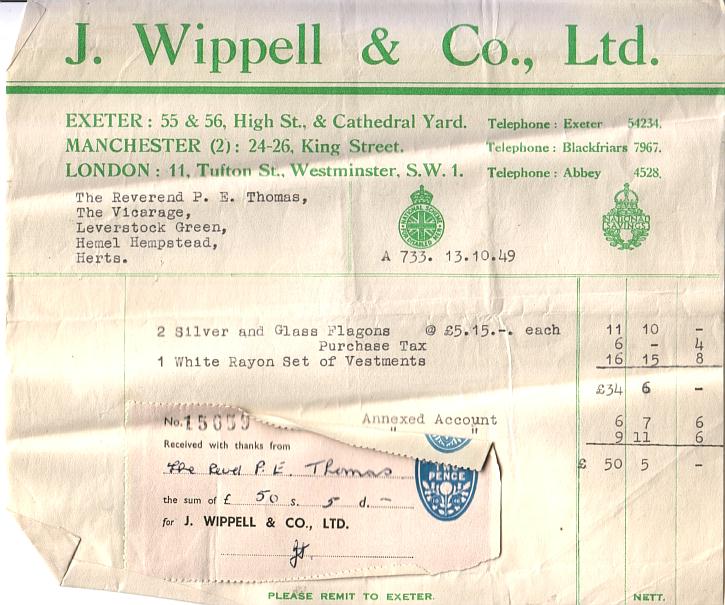 J. Wippell & Co., Ltd.
EXETER: 55 & 56, High St., & Cathedral Yard. Telephone: Exeter 54234.
MANCHESTER (2): 24-26, King Street. Telephone: Blackfriars 7967.
LONDON: 11, Tufton St., Westminster, S.W. 1. Telephone: Abbey 4528.
The Reverend P. E. Thomas,
The Vicarage,
Leverstock Green,
Hemel Hempstead,
Herts.
NATIONAL SCHEME FOR DISABLED MEN
NATIONAL SAVINGS
A 733. 13.10.49
2 Silver and Glass Flagons @ £5.15.-. each 11 10 -
Purchase Tax 6 - 4
1 White Rayon Set of Vestments 16 15 8
£34 6 -
Annexed Account 6 7 6
" " 9 11 6
£ 50 5 -
No. 15659
Received with thanks from
The Revd P. E. Thomas
the sum of £ 50 s. 5 d. -
for J. WIPPELL & CO., LTD.
PENCE
PLEASE REMIT TO EXETER. NETT.